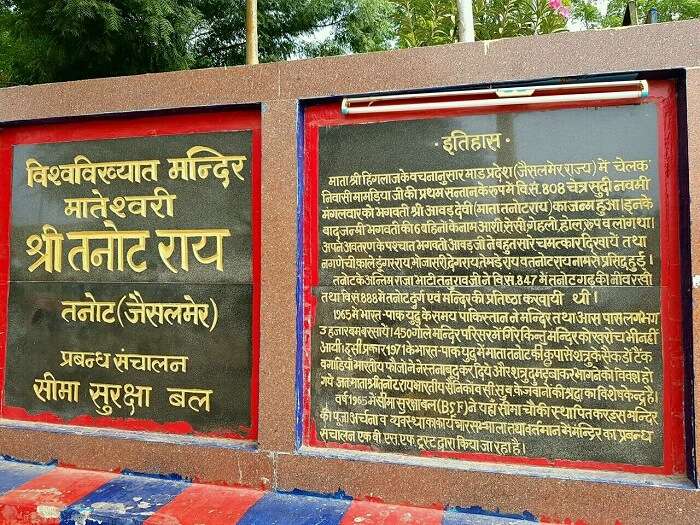 विश्वविख्यात मन्दिर
मातेश्वरी
श्री तनोट राय
तनोट (जैसलमेर)
प्रबन्ध संचालन
सीमा सुरक्षा बल
इतिहास
माता श्री हिंगलाज के वचनानुसार माड प्रदेश (जैसलमेर राज्य) में चेलक
निवासी मामडिया जी की प्रथम सन्तान के रूप में वि.सं. 808 चेत्र सुदी नवमी
मंगलवार को भगवती श्री आवड देवी (माता तनोट राय) का जन्म हुआ। इनके
बाद जन्मी भगवती की 6 बहिनो के नाम आशी, सेसी, गेहली, होल, रूप व लांग था।
अपने अवतरण के पश्चात भगवती आवड जी ने बहुत सारे चमत्कार दिखाये तथा
नगणेची, काले डूंगर राय, भोजासरी, देगराय, तेमडेराय व तनोट राय नाम से प्रसिद्ध हुई।
तनोट के अन्तिम राजा भाटी तनुराव जी ने वि.सं. 847 में तनोट गढ की नींव रखी
तथा वि.सं. 888 में तनोट दुर्ग एवं मन्दिर की प्रतिष्ठा करवायी थी।
1965 में भारत-पाक युद्ध के समय पाकिस्तान ने मन्दिर तथा आस पास लगभग
3 हजार बम बरसाये। 450 गोले मन्दिर परिसर में गिरे किन्तु मन्दिर को खरोंच भी नहीं
आयी। इसी प्रकार 1971 के भारत-पाक युद्ध में माता तनोट की कृपा से शत्रु के सेकडों टैंक
व गाडियां भारतीय फौजो ने नेस्तनाबूद कर दिये और शत्रु दुम दबाकर भागने को विवश हो
गये अतः माता श्री तनोट राय भारतीय सैनिको व सी सु ब के जवानो की श्रद्धा का विशेष केन्द्र है।
वर्ष 1965 में सीमा सुरक्षा बल (BSF) ने यहाँ सीमा चौकी स्थापित कर इस मन्दिर
की पूजा अर्चना व व्यवस्था का कार्यभार सम्भाला तथा वर्तमान में मन्दिर का प्रबन्ध
संचालन एक बी.एस.एफ. ट्रस्ट द्वारा किया जा रहा है।